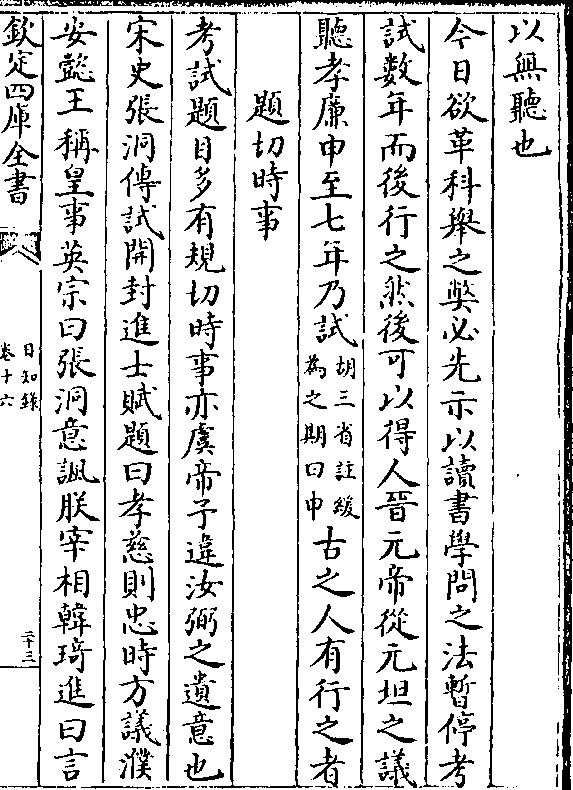 以無聽也
今日欲革科舉之獘必先示以讀書學問之法暫停考
試數年而後行之然後可以得人晉元帝從元坦之議
聽孝廉申至七年乃試胡三省註緩為之期曰申古之人有行之者
題切時事
考試題目多有規切時事亦虞帝予違汝弼之遺意也
宋史張洞傳試開封進士賦題曰孝慈則忠時方議濮
安懿王稱皇事英宗曰張洞意諷朕宰相韓琦進曰言
欽定四庫全書
日知錄
卷十六
二十三